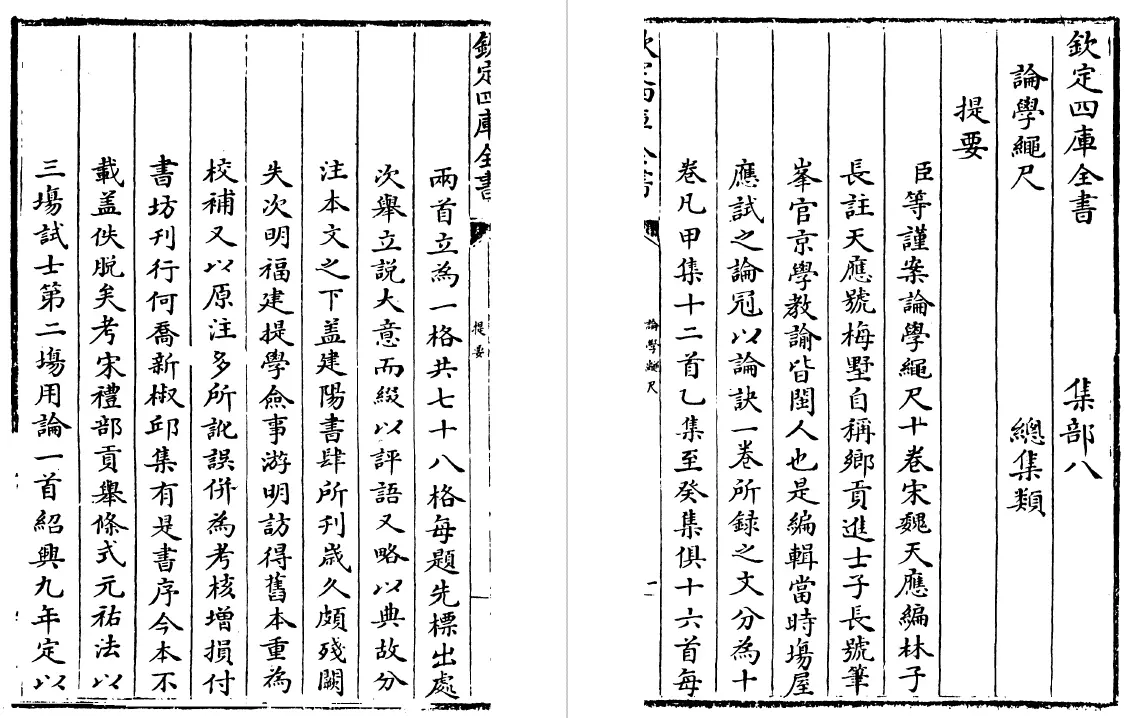 欽定四庫全書 集部八
論學繩尺 總集類
提要
臣等謹案論學繩尺十卷宋魏天應編林子
長註天應號梅墅自稱鄉貢進士子長號筆
峯官京學教諭皆閩人也是編輯當時塲屋
應試之論冠以論訣一卷所録之文分為十
卷凡甲集十二首乙集至癸集俱十六首每
論學繩尺
提要
欽定四庫全書
兩首立為一格共七十八格每題先標出處
次舉立説大意而綴以評語又略以典故分
注本文之下盖建陽書肆所刋歲久頗殘闕
失次明福建提學僉事游明訪得舊本重為
校補又以原注多所訛誤併為考核增損付
書坊刋行何喬新椒邱集有是書序今本不
載盖佚脱矣考宋禮部貢舉條式元祐法以
三塲試士第二塲用論一首紹興九年定以